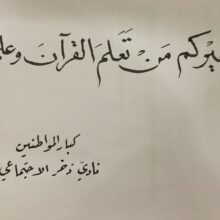 يركم مَنْ تَعَلَّمَ القرآنَ وعلّ
كبار المواطنين
نادي ذخر الاجتماعي